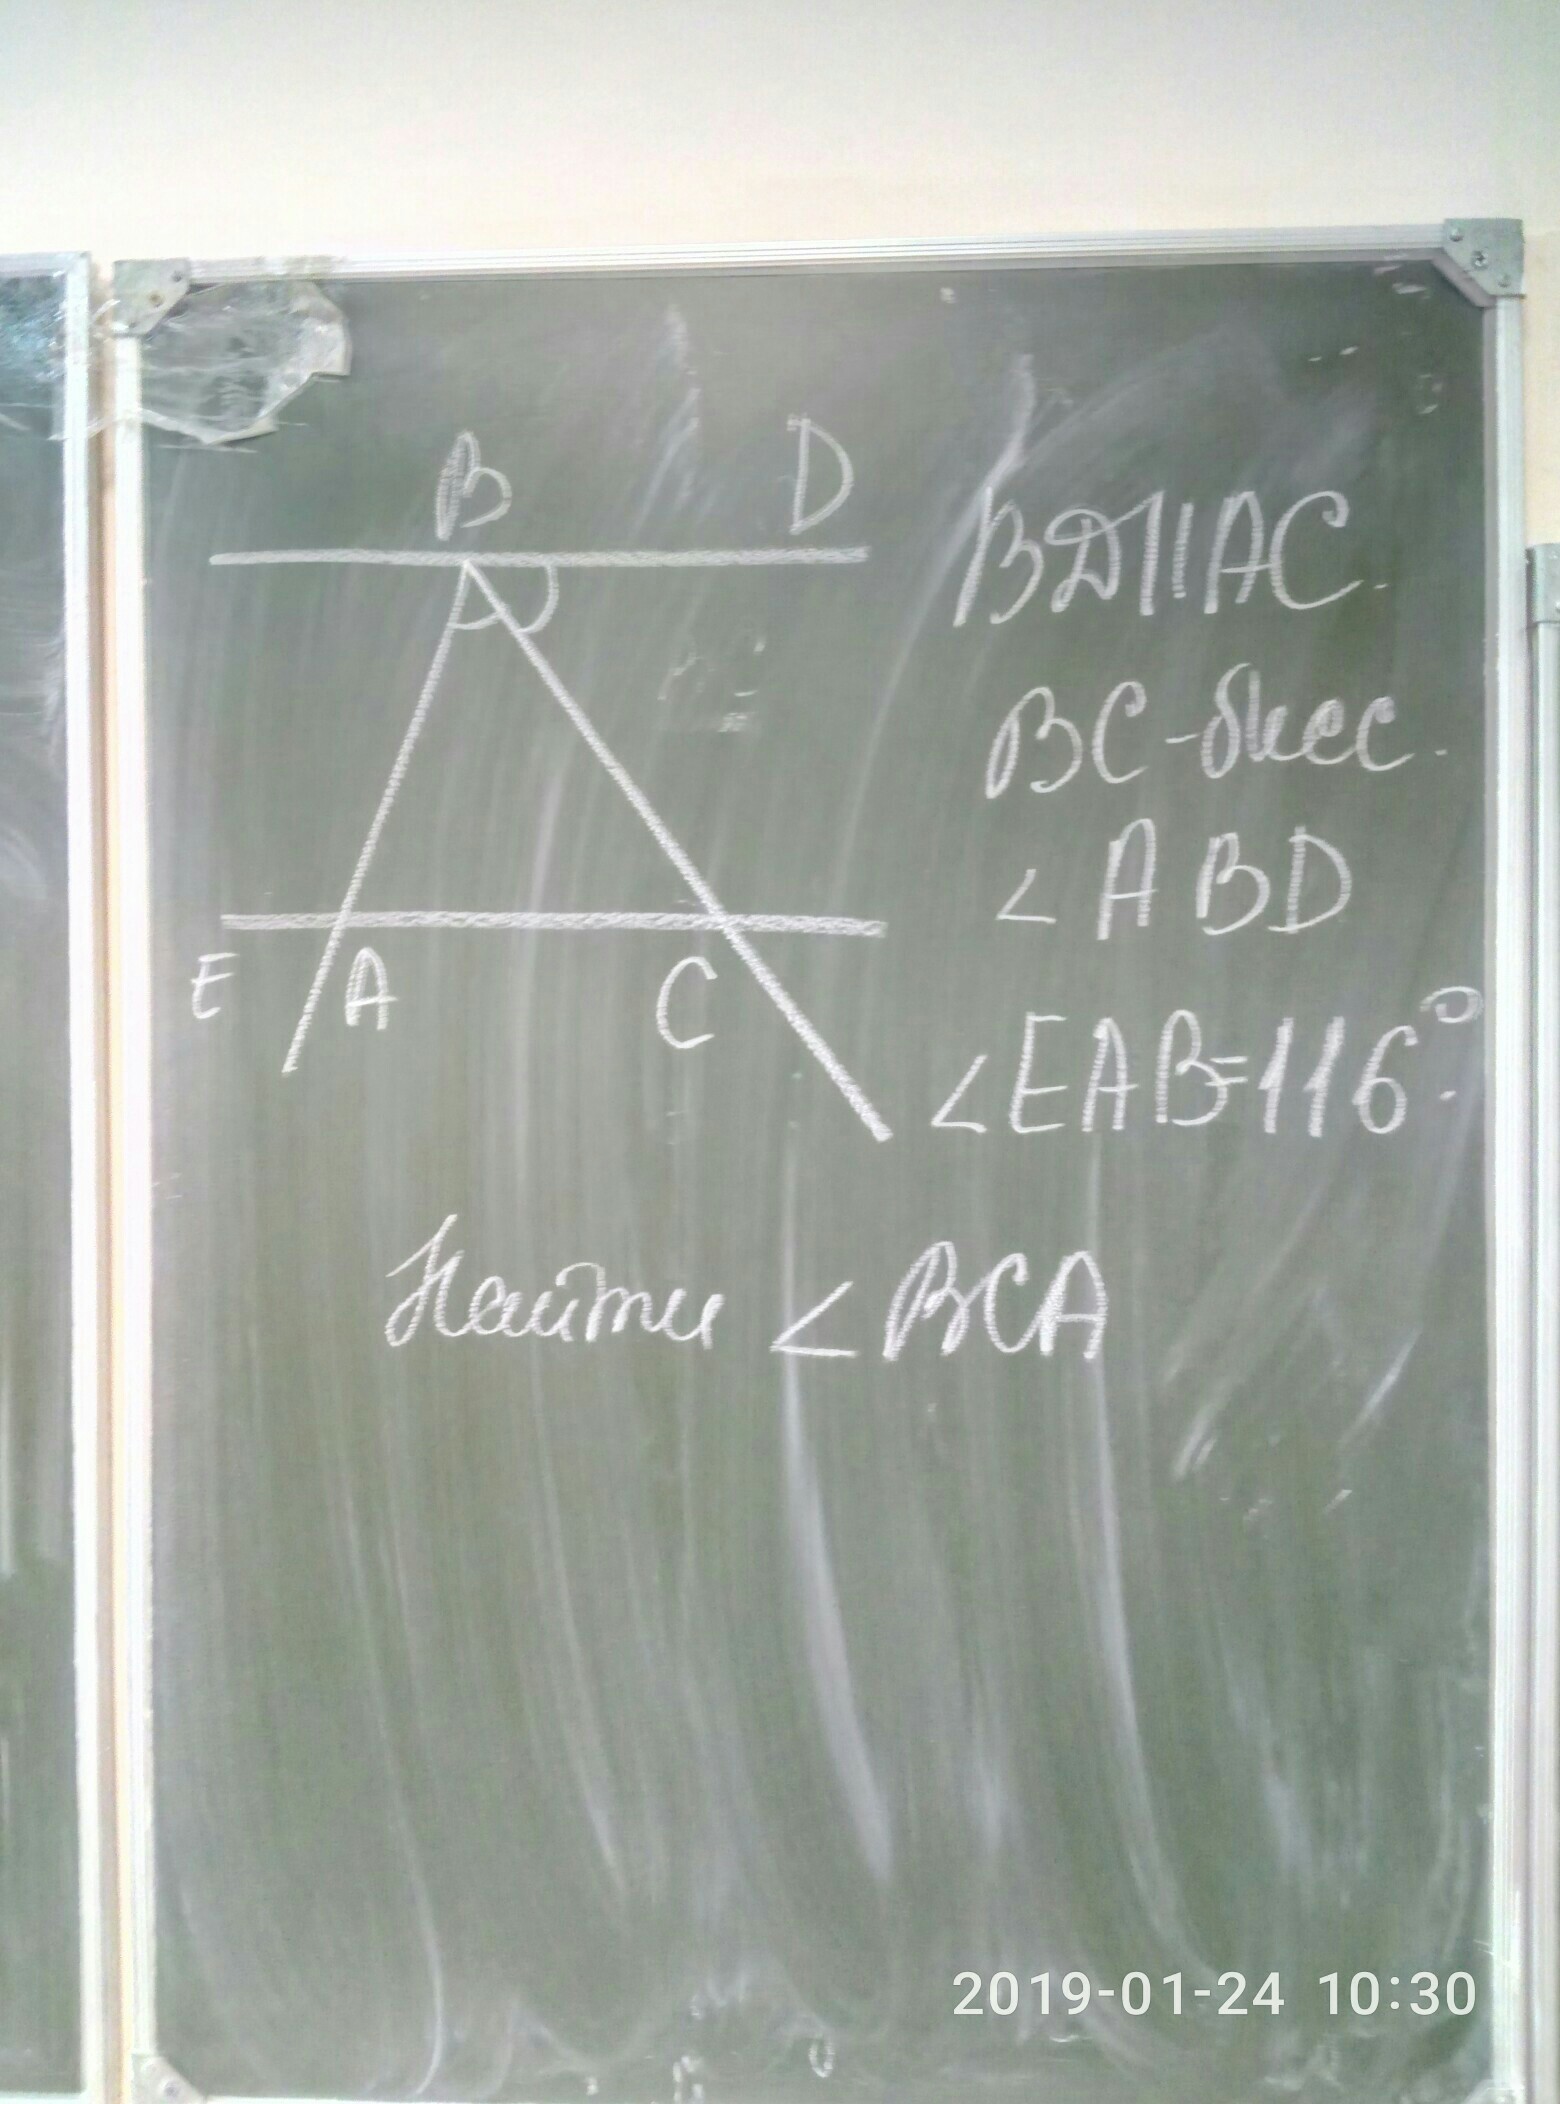 B D
BD||AC.
BC-бисс.
∠ABD
E A C
∠EAB=116°.
Найти ∠BCA
2019-01-24 10:30